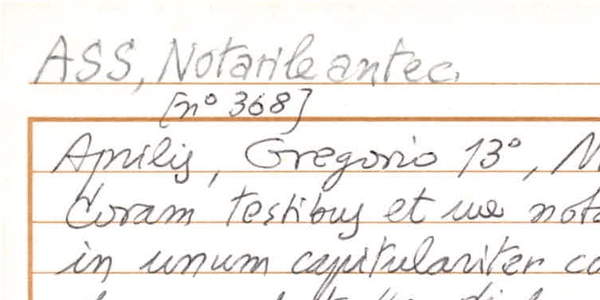 ASS, Notarile antec.
[n° 368]
Aprilis, Gregorio 13°,
Coram testibus et me
in unum capitulariter